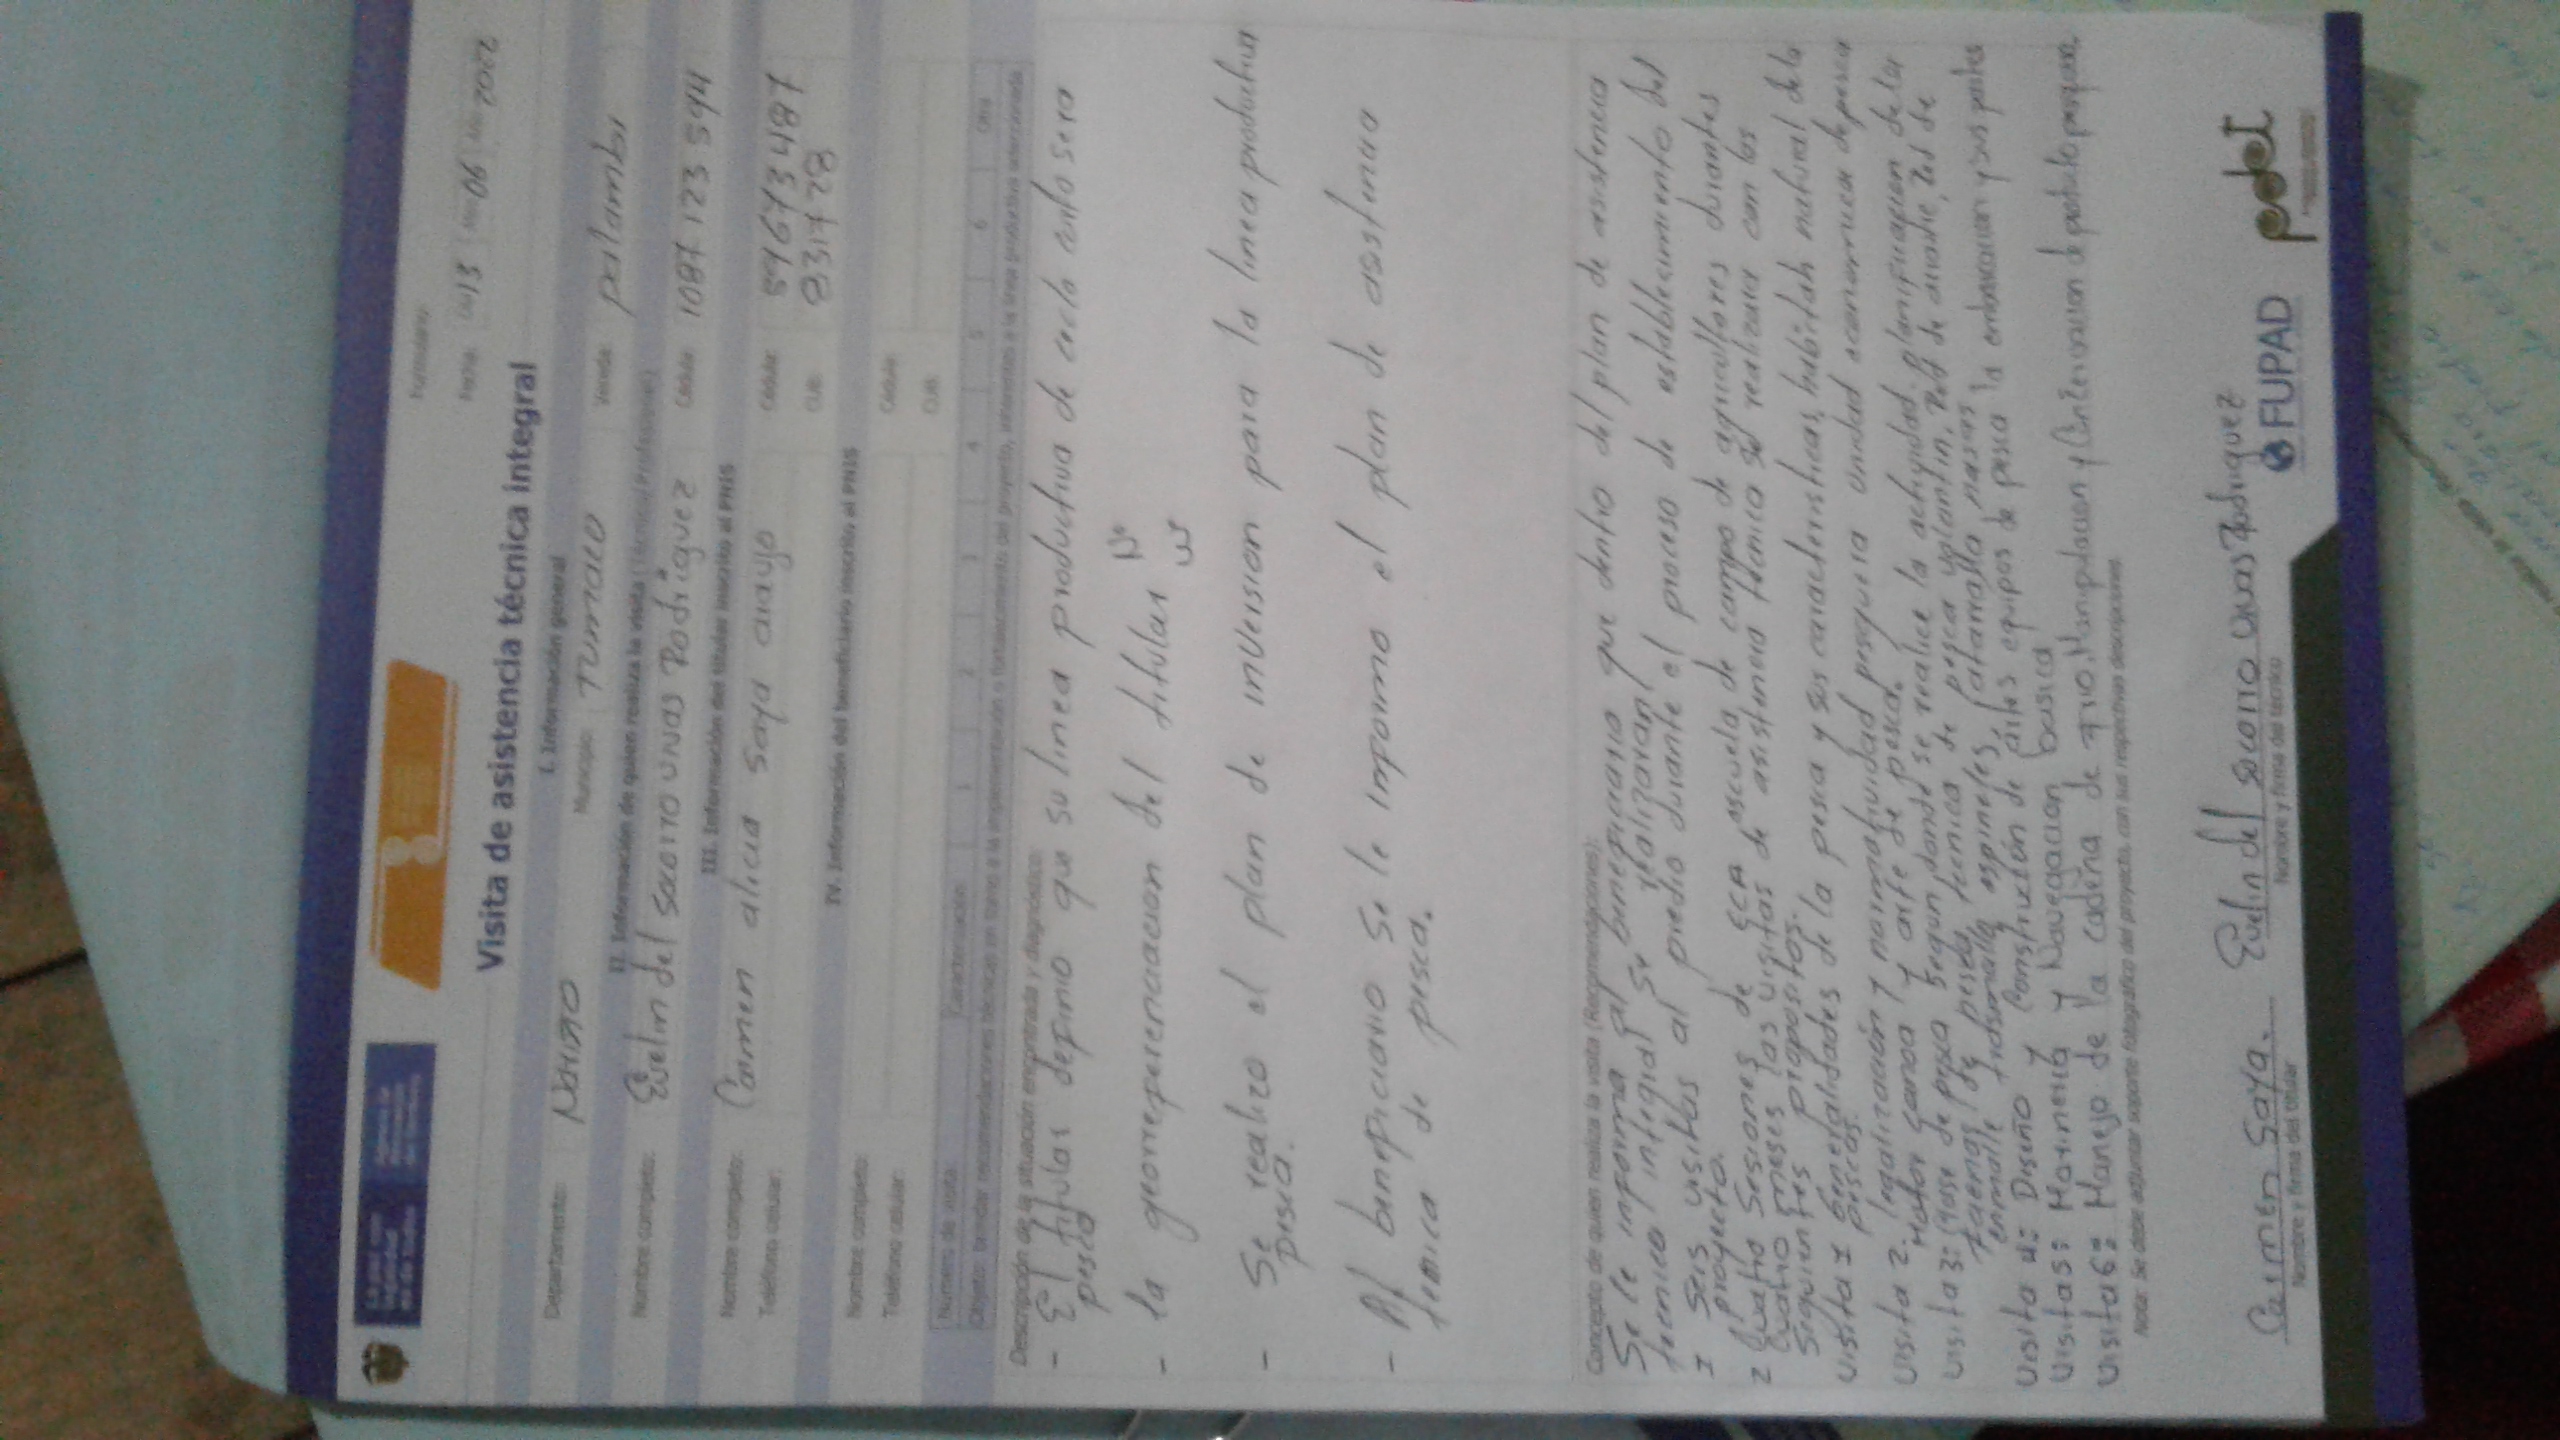 Formulario:
Fecha: Día 13 Mes 06 Año 2022
Visita de asistencia técnica integral
I. Información general
Departamento: Nariño Municipio: TUMACO Vereda: palambi
II. Información de quien realiza la visita (Técnico/Profesional)
Nombre completo: Evelin del Socorro Vivas Rodriguez Cédula: 1087 123 594
III. Información del titular inscrito al PNIS
Nombre completo: Carmen alicia Saya araujo Cédula: 59673487
Teléfono celular: CUB: 8317728
IV. Información del beneficiario inscrito al PNIS
Nombre completo: Cédula:
Teléfono celular: CUB:
Número de visita: Caracterización: 1 2 3 4 5 6 Otro
Objeto: brindar recomendaciones técnicas en torno a la implementación o fortalecimiento del proyecto, referentes a la línea productiva seleccionada
Descripción de la situación encontrada y diagnóstico:
- El titular definio que su linea productiva de ciclo corto sera
pesca
- la georreferenciacion del titular N°
W
- Se realizo el plan de inversion para la linea productiva
pesca.
- Al beneficiario Se le informo el plan de asistencia
tecnica de pesca.
Concepto de quien realiza la visita (Recomendaciones):
Se le informa al beneficiario que dentro del plan de asistencia
tecnica integral Se realizaran
1 Seis visitas al predio durante el proceso de establecimiento del
proyecto.
2 Cuatro Sesiones de ECA escuela de campo de agricultores durantes
cuatro meses las visitas de asistencia técnica se realizara con los
siguientes propositos.
visita 1 Generalidades de la pesca y sus caracteristicas, habitah natural de la
pescas.
visita 2. legalización y normatividad pesquera unidad economica de pesca
Motor Canoa y arte de pesca.
visita 3: Clase de pesca Segun donde se realice la actividad, planificacion de las
faenas de pesca, tecnica de pesca volantin, Red de arrastre, Red de
enmalle trasmallo, espineles, atarraya nasas
visita 4: Diseño y Construcción de artes equipos de pesca la embarcacion y sus partes
visita 5: Marineria y Navegacion basica
visita 6: Manejo de la cadena de frio, Manipulacion y Conservacion de producto pesquero.
Nota: Se debe adjuntar soporte fotográfico del proyecto, con sus respectivas descripciones.
Carmen Saya. Evelin del Socorro Vivas Rodriguez
Nombre y firma del titular Nombre y firma del técnico
FUPAD pdet